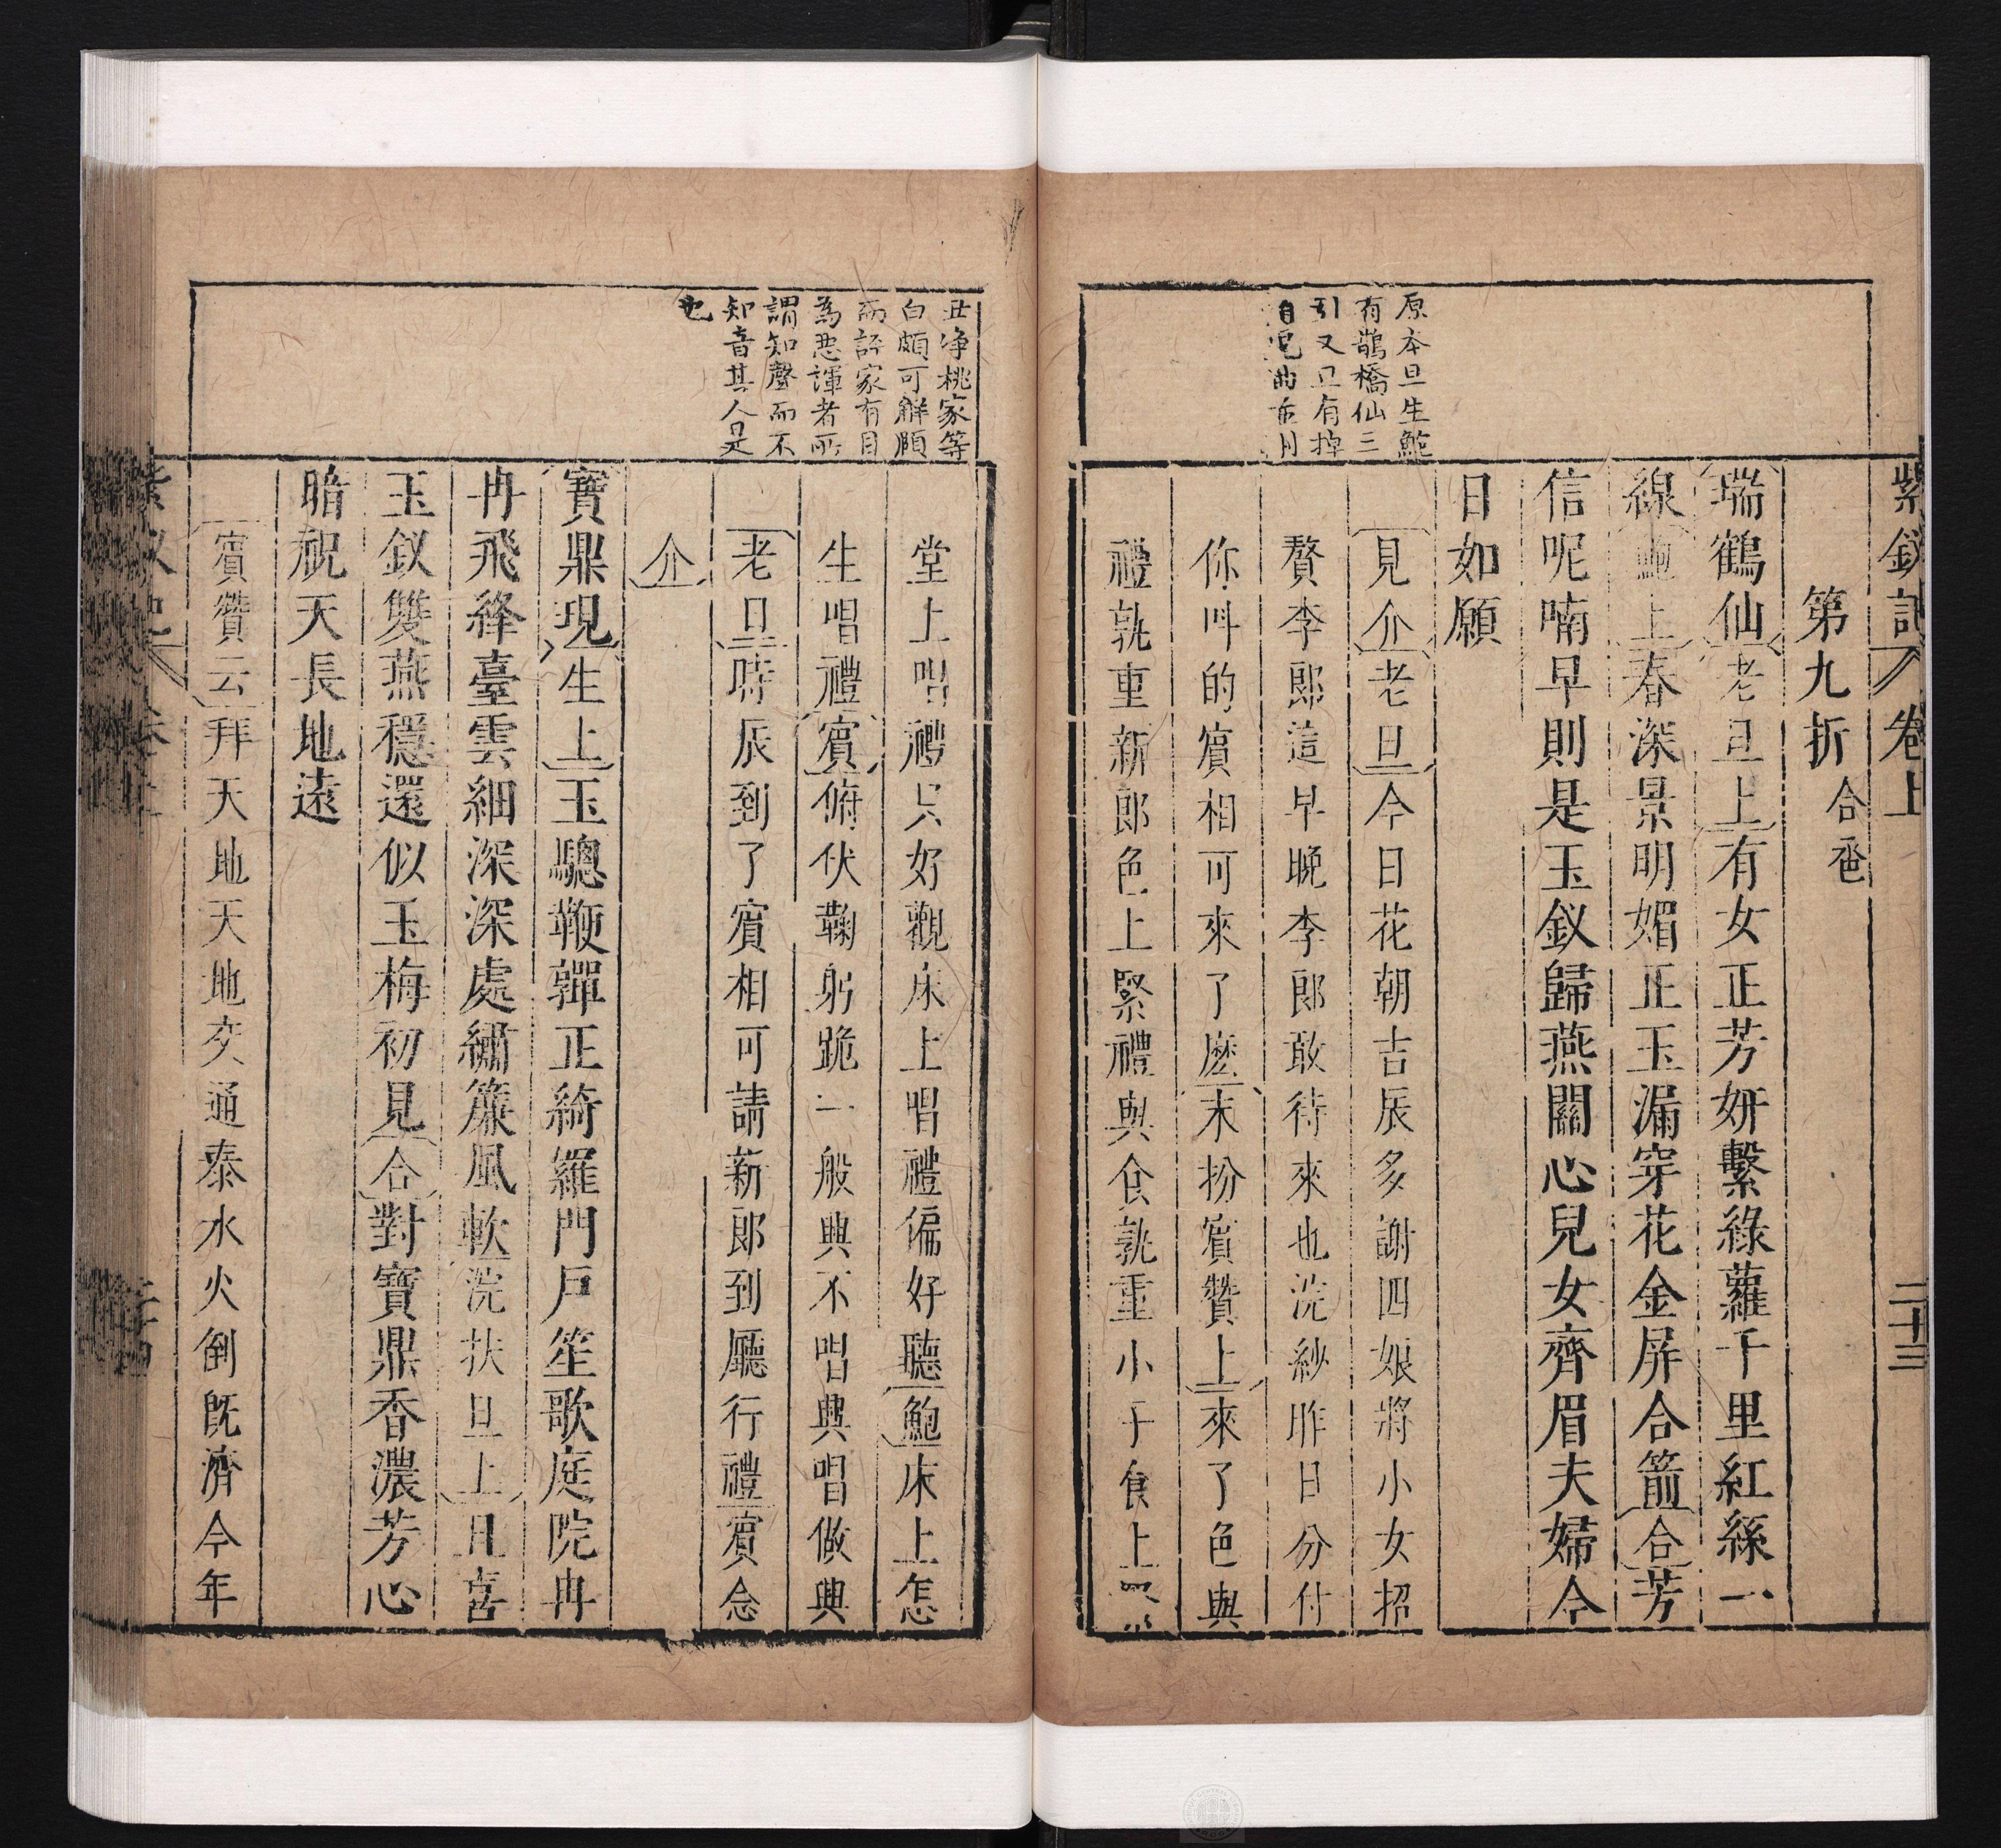 紫釵記 卷上 二十三
第九折 合卺
瑞鶴仙老旦上有女正芳妍繫綠蘿千里紅絲一
線鮑上春深景明媚正玉漏穿花金屏合箭合芳
信呢喃早則是玉釵歸燕關心兒女齊眉夫婦今
日如願
見介老旦今日花朝吉辰多謝四娘將小女招
贅李郎這早晚李郎敢待來也浣紗昨日分付
你叫的賓相可來了麽末扮賓贊上來了色與
禮孰重新郎色上緊禮與食孰重小子食上
原本旦生鮑
有鵲橋仙三
引又旦有掉
堂上唱禮只好觀床上唱禮偏好聽鮑床上怎
生唱禮賓俯伏鞠躬跪一般興不唱興唱做興
老旦時辰到了賓相可請新郎到廳行禮賓念
介
寶鼎現生上玉驄鞭嚲正綺羅門戶笙歌庭院冉
冉飛絳臺雲細深深處繡簾風軟浣扶旦上旦喜
玉釵雙燕穩還似玉梅初見合對寶鼎香濃芳心
暗祝天長地遠
賓贊云拜天地天地交通泰水火倒既濟今年
丑淨桃家等
白頗可解頤
而評家有目
為惡諢者所
謂知聲而不
知音其人是
也